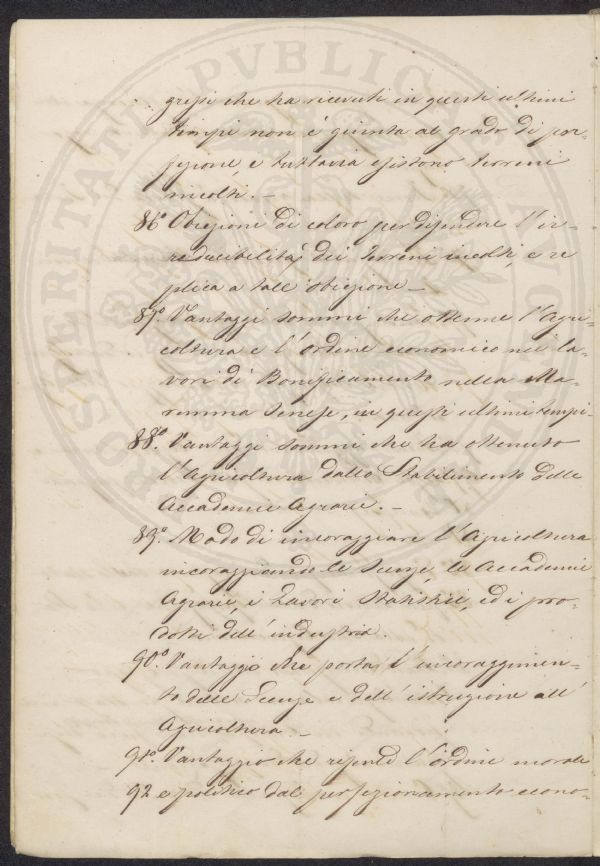 gressi che ha ricevuti in questi ultimi
tempi non è giunta al grado di per-
fezione, e tuttavia esistono terreni
incolti. -
86° Obiezione di coloro per difendere l'ir-
reducibilità dei terreni incolti, e re
plica a tale obiezione -
87° Vantaggi sommi che ottenne l'Agri-
coltura e l'ordine economico nei la-
vori di Bonificamento nella Ma-
remma Senese, in questi ultimi tempi -
88°. Vantaggi sommi che ha ottenuto
l'Agricoltura dallo Stabilimento delle
Accademie Agrarie. -
89°. Modo di incoraggiare l'Agricoltura
incoraggiando le Scienze, le Accademie
Agrarie, i Lavori Statistici, ed i pro-
dotti dell'industria.
90° Vantaggio che porta l'incoraggimen-
to delle Scienze e dell'istruzione all'
Agricoltura. -
91°. Vantaggio che risente l'ordine morale
92 e politico dal perfezionamento econo-
PROSPERITATI PVBLICAE AVGENDAE